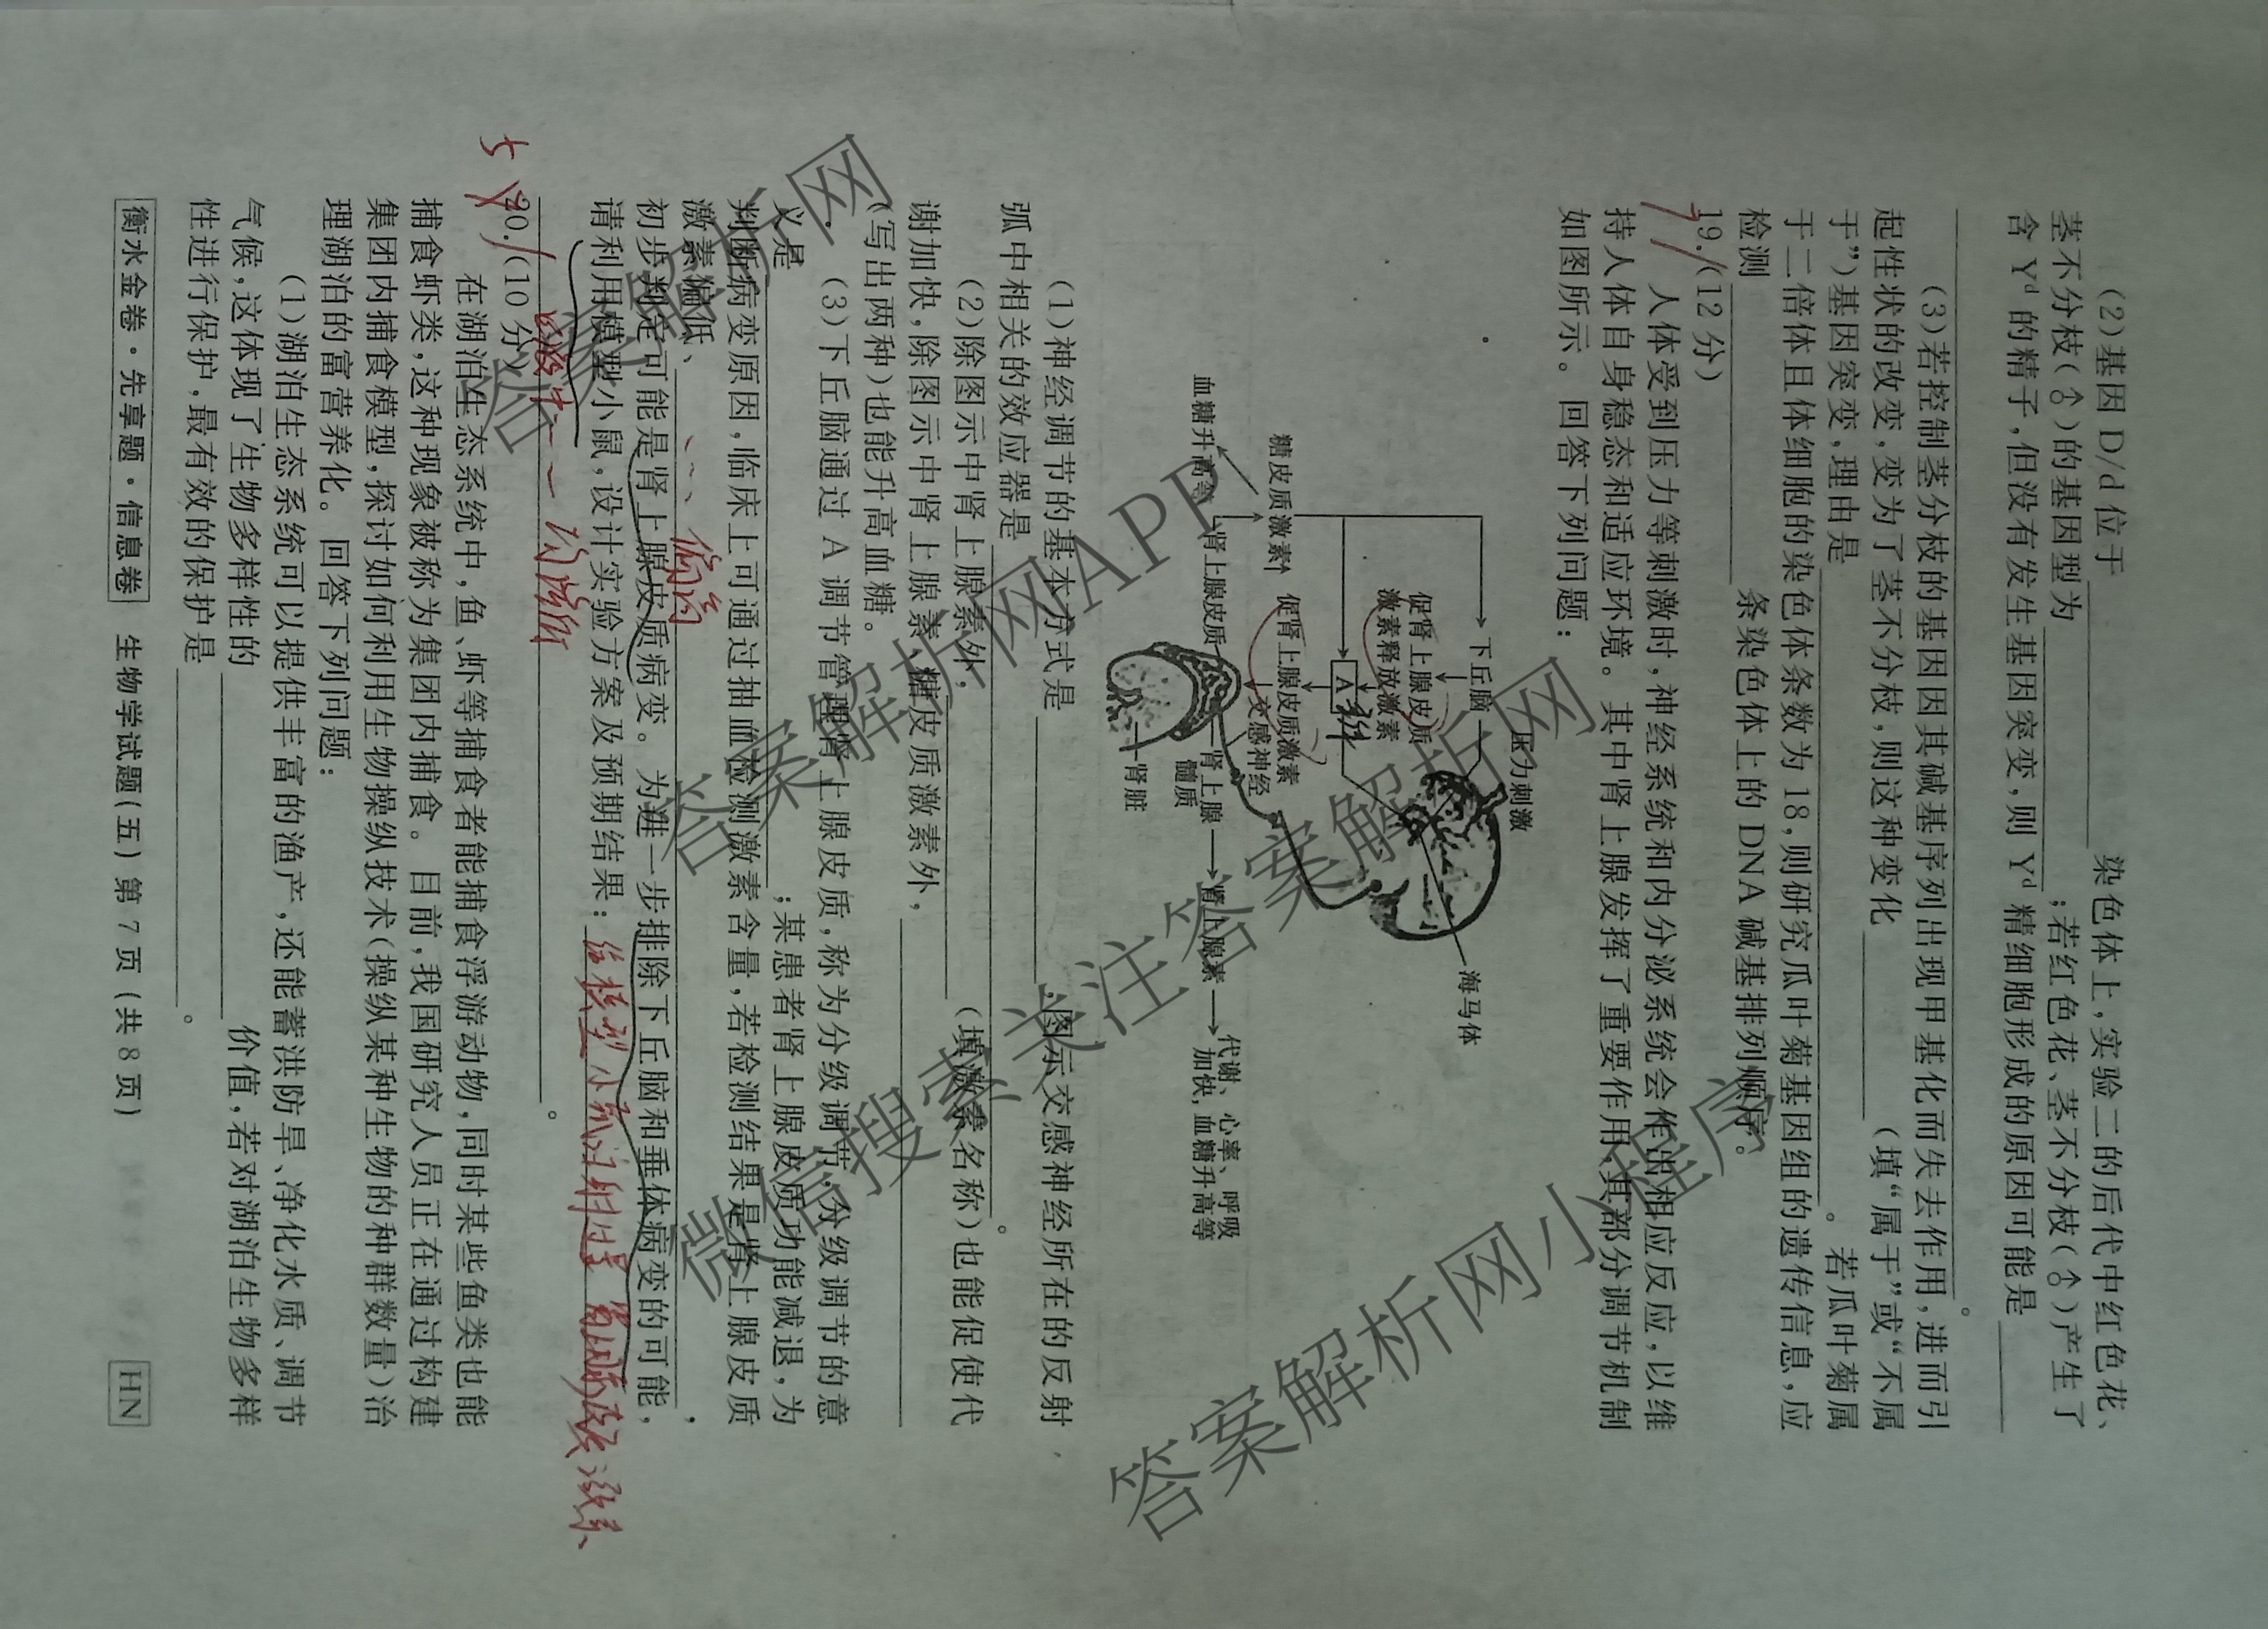 (2)基因 D/d 位于________染色体上,实验二的后代中红色花、
茎不分枝(♂)的基因型为________;若红色花、茎不分枝(♂)产生了
含 Yᵈ 的精子,但没有发生基因突变,则 Yᵈ 精细胞形成的原因可能是____
________。
(3)若控制茎分枝的基因因其碱基序列出现甲基化而失去作用,进而引
起性状的改变,变为了茎不分枝,则这种变化________(填“属于”或“不属
于”)基因突变,理由是________。若瓜叶菊属
于二倍体且体细胞的染色体条数为 18,则研究瓜叶菊基因组的遗传信息,应
检测________条染色体上的 DNA 碱基排列顺序。
19.(12 分)
人体受到压力等刺激时,神经系统和内分泌系统会作出相应反应,以维
持人体自身稳态和适应环境。其中肾上腺发挥了重要作用,其部分调节机制
如图所示。回答下列问题:
压力刺激
下丘脑
海马体
促肾上腺皮质
激素释放激素
A
垂体
促肾上腺皮质激素
交感神经
糖皮质激素
肾上腺皮质
肾上腺
髓质
肾上腺素
代谢、心率、呼吸
加快,血糖升高等
血糖升高等
肾脏
(1)神经调节的基本方式是________,图示交感神经所在的反射
弧中相关的效应器是________。
(2)除图示中肾上腺素外,________(填激素名称)也能促使代
谢加快,除图示中肾上腺素、糖皮质激素外,________
(写出两种)也能升高血糖。
(3)下丘脑通过 A 调节管理肾上腺皮质,称为分级调节,分级调节的意
义是________;某患者肾上腺皮质功能减退,为
判断病变原因,临床上可通过抽血检测激素含量,若检测结果是肾上腺皮质
激素偏低、________,
偏高
初步判定可能是肾上腺皮质病变。为进一步排除下丘脑和垂体病变的可能,
请利用模型小鼠,设计实验方案及预期结果:________
给模型小鼠注射过量肾上腺皮质激素
________。
5
20.(10 分)
在湖泊生态系统中,鱼、虾等捕食者能捕食浮游动物,同时某些鱼类也能
捕食虾类,这种现象被称为集团内捕食。目前,我国研究人员正在通过构建
集团内捕食模型,探讨如何利用生物操纵技术(操纵某种生物的种群数量)治
理湖泊的富营养化。回答下列问题:
(1)湖泊生态系统可以提供丰富的渔产,还能蓄洪防旱、净化水质、调节
气候,这体现了生物多样性的________价值,若对湖泊生物多样
性进行保护,最有效的保护是________。
衡水金卷·先享题·信息卷 生物学试题(五) 第 7 页(共 8 页) HN
答案解析网
答案解析网APP
微信搜索关注答案解析网
答案解析网小程序